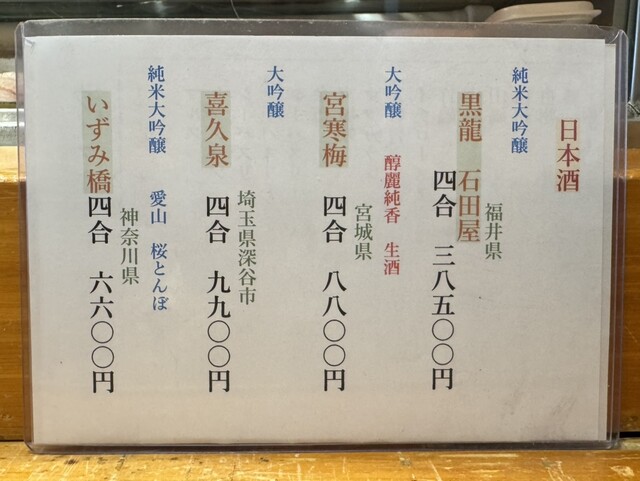 日本酒
純米大吟醸
黒龍 石田屋
福井県
四合 三八五〇〇円
大吟醸 醇麗純香 生酒
宮寒梅
宮城県
四合 八八〇〇円
大吟醸
喜久泉
埼玉県深谷市
四合 九九〇〇円
純米大吟醸 愛山 桜とんぼ
いずみ橋
神奈川県
四合 六六〇〇円